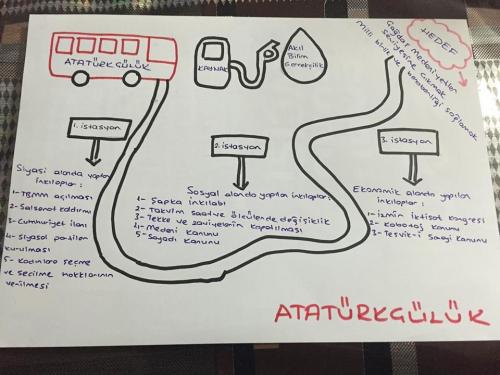 ATATÜRKGÜLÜK
KAYNAK
Akıl
Bilim
Gerçekçilik
HEDEF
Çağdaş medeniyetler
seviyesine çıkmak
Milli birlik ve beraberliği sağlamak
1. istasyon
Siyasi alanda yapılan
inkılaplar:
1- TBMM açılması
2- Saltanat kaldırımı
3- Cumhuriyet ilanı
4- Siyasal partiler
kurulması
5- Kadınlara seçme
ve secilme haklarının
verilmesi
2. istasyon
Sosyal alanda yapılan inkılaplar:
1- Şapka inkılabı
2- Takvim saat ve ölçülerde değişiklik
3- Tekke ve zaviyelerin kapatılması
4- Medeni Kanunu
5- Soyadı Kanunu
3. istasyon
Ekonomik alanda yapılan
inkılaplar:
1- İzmir İktisat Kongresi
2- Kabotaj Kanunu
3- Teşvik-i Sanayi Kanunu
ATATÜRKGÜLÜK